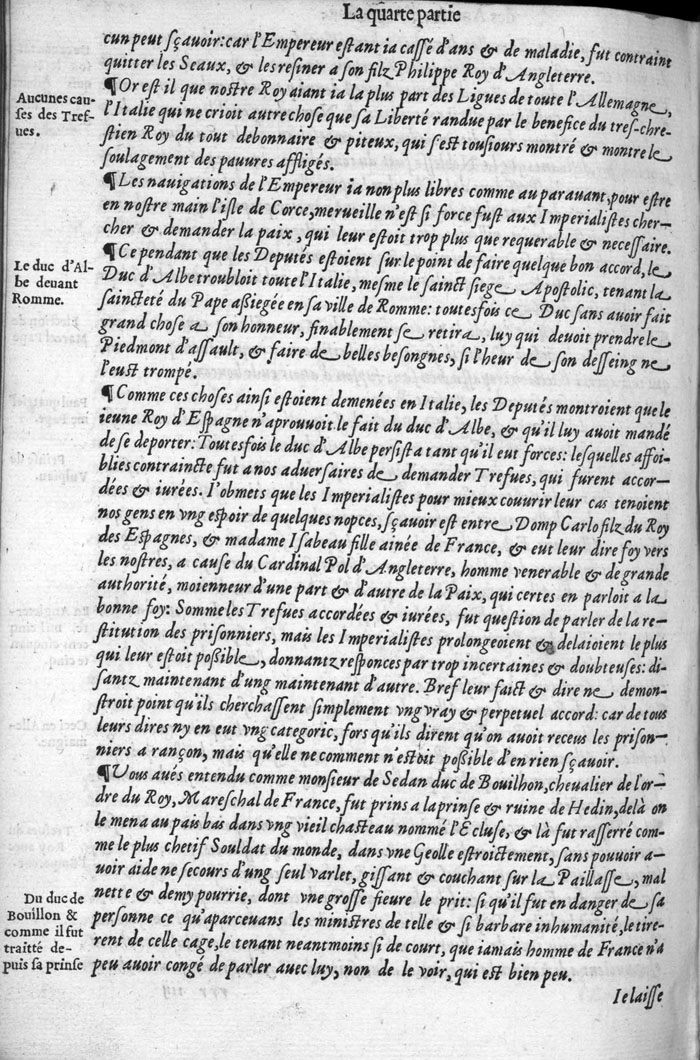 La quarte partie
cun peut sçauoir: car l'Empereur estant ia cassé d'ans & de maladie, fut contraint
quitter les Seaux, & les resiner a son filz Philippe Roy d'Angleterre.
¶Or est il que nostre Roy aiant ia la plus part des Ligues de toute l'Allemagne,
l'Italie qui ne crioit autre chose que sa Liberté randue par le benefice du tres-chre-
stien Roy du tout debonnaire & piteux, qui s'est tousiours montré & montre le
soulagement des pauures affligés.
Aucunes cau-
ses des Tref-
ues.
¶Les nauigations de l'Empereur ia non plus libres comme au parauant, pour estre
en nostre main l'isle de Corce, merueille n'est si force fust aux Imperialistes cher-
cher & demander la paix, qui leur estoit trop plus que requerable & necessaire.
¶Ce pendant que les Deputés estoient sur le point de faire quelque bon accord, le
Duc d'Albe troubloit toute l'Italie, mesme le sainct siege Apostolic, tenant la
saincteté du Pape aßiegée en sa ville de Romme: toutesfois ce Duc sans auoir fait
grand chose a son honneur, finablement se retira, luy qui deuoit prendre le
Piedmont d'assault, & faire de belles besongnes, si l'heur de son desseing ne
l'eust trompé.
Le duc d'Al-
be deuant
Romme.
¶Comme ces choses ainsi estoient demenées en Italie, les Deputés montroient que le
ieune Roy d'Espagne n'aprouuoit le fait du duc d'Albe, & qu'il luy auoit mandé
de se deporter: Toutesfois le duc d'Albe persista tant qu'il eut forces: lesquelles affoi-
blies contraincte fut a nos aduersaires de demander Trefues, qui furent accor-
dées & iurées. I'obmets que les Imperialistes pour mieux couurir leur cas tenoient
nos gens en vng espoir de quelques nopces, sçauoir est entre Domp Carlo filz du Roy
des Espagnes, & madame Isabeau fille ainée de France, & eut leur dire foy vers
les nostres, a cause du Cardinal Pol d'Angleterre, homme venerable & de grande
authorité, moienneur d'une part & d'autre de la Paix, qui certes en parloit a la
bonne foy: Somme les Trefues accordées & iurées, fut question de parler de la re-
stitution des prisonniers, mais les Imperialistes prolongeoient & delaioient le plus
qui leur estoit poßible, donnantz responces par trop incertaines & doubteuses: di-
santz maintenant d'ung maintenant d'autre. Bref leur faict & dire ne demon-
stroit point qu'ils cherchassent simplement vng vray & perpetuel accord: car de tous
leurs dires ny en eut vng categoric, fors qu'ils dirent qu'on auoit receus les prison-
niers a rançon, mais qu'elle ne comment n'estoit poßible d'en rien sçauoir.
¶Vous aués entendu comme monsieur de Sedan duc de Bouilhon, cheualier de l'or-
dre du Roy, Mareschal de France, fut prins a la prinse & ruine de Hedin, delà on
le mena au pais bas dans vng vieil chasteau nommé l'Ecluse, & là fut rasserré com-
me le plus chetif Souldat du monde, dans vne Geolle estroictement, sans pouuoir a-
uoir aide ne secours d'ung seul varlet, gissant & couchant sur la Paillasse, mal
nette & demy pourrie, dont vne grosse fieure le prit: si qu'il fut en danger de sa
personne ce qu'aparceuans les ministres de telle & si barbare inhumanité, le tire-
rent de celle cage, le tenant neantmoins si de court, que iamais homme de France n'a
peu auoir congé de parler auec luy, non de le voir, qui est bien peu.
Du duc de
Bouillon &
comme il fut
traitté de-
puis sa prinse
Ie laisse